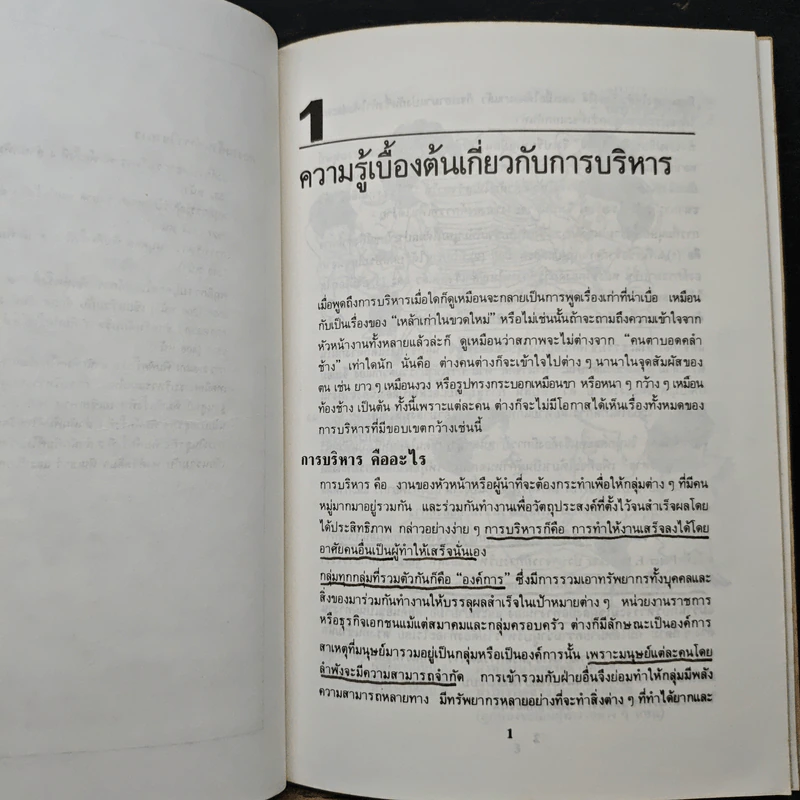 1
ความรู้เบื้องต้นเกี่ยวกับการบริหาร
เมื่อพูดถึงการบริหารเมื่อใดก็ดูเหมือนจะกลายเป็นการพูดเรื่องเก่าที่น่าเบื่อ เหมือน
กับเป็นเรื่องของ “เหล้าเก่าในขวดใหม่” หรือไม่เช่นนั้นถ้าจะถามถึงความเข้าใจจาก
หัวหน้างานทั้งหลายแล้วล่ะก็ ดูเหมือนว่าสภาพจะไม่ต่างจาก “คนตาบอดคลำ
ช้าง” เท่าใดนัก นั่นคือ ต่างคนต่างก็จะเข้าใจไปต่าง ๆ นานาในจุดสัมผัสของ
ตน เช่น ยาว ๆ เหมือนงวง หรือรูปทรงกระบอกเหมือนขา หรือหนา ๆ กว้าง ๆ เหมือน
ท้องช้าง เป็นต้น ทั้งนี้เพราะแต่ละคน ต่างก็จะไม่มีโอกาสได้เห็นเรื่องทั้งหมดของ
การบริหารที่มีขอบเขตกว้างเช่นนี้
การบริหาร คืออะไร
การบริหาร คือ งานของหัวหน้าหรือผู้นำที่จะต้องกระทำเพื่อให้กลุ่มต่าง ๆ ที่มีคน
หมู่มากมาอยู่รวมกัน และร่วมกันทำงานเพื่อวัตถุประสงค์ที่ตั้งไว้จนสำเร็จผลโดย
ได้ประสิทธิภาพ กล่าวอย่างง่าย ๆ การบริหารก็คือ การทำให้งานเสร็จลงได้โดย
อาศัยคนอื่นเป็นผู้ทำให้เสร็จนั่นเอง
กลุ่มทุกกลุ่มที่รวมตัวกันก็คือ “องค์การ” ซึ่งมีการรวมเอาทรัพยากรทั้งบุคคลและ
สิ่งของมาร่วมกันทำงานให้บรรลุผลสำเร็จในเป้าหมายต่าง ๆ หน่วยงานราชการ
หรือธุรกิจเอกชนแม้แต่สมาคมและกลุ่มครอบครัว ต่างก็มีลักษณะเป็นองค์การ
สาเหตุที่มนุษย์มารวมอยู่เป็นกลุ่มหรือเป็นองค์การนั้น เพราะมนุษย์แต่ละคนโดย
ลำพังจะมีความสามารถจำกัด การเข้ารวมกับฝ่ายอื่นจึงย่อมทำให้กลุ่มมีพลัง
ความสามารถหลายทาง มีทรัพยากรหลายอย่างที่จะทำสิ่งต่าง ๆ ที่ทำได้ยากและ
1